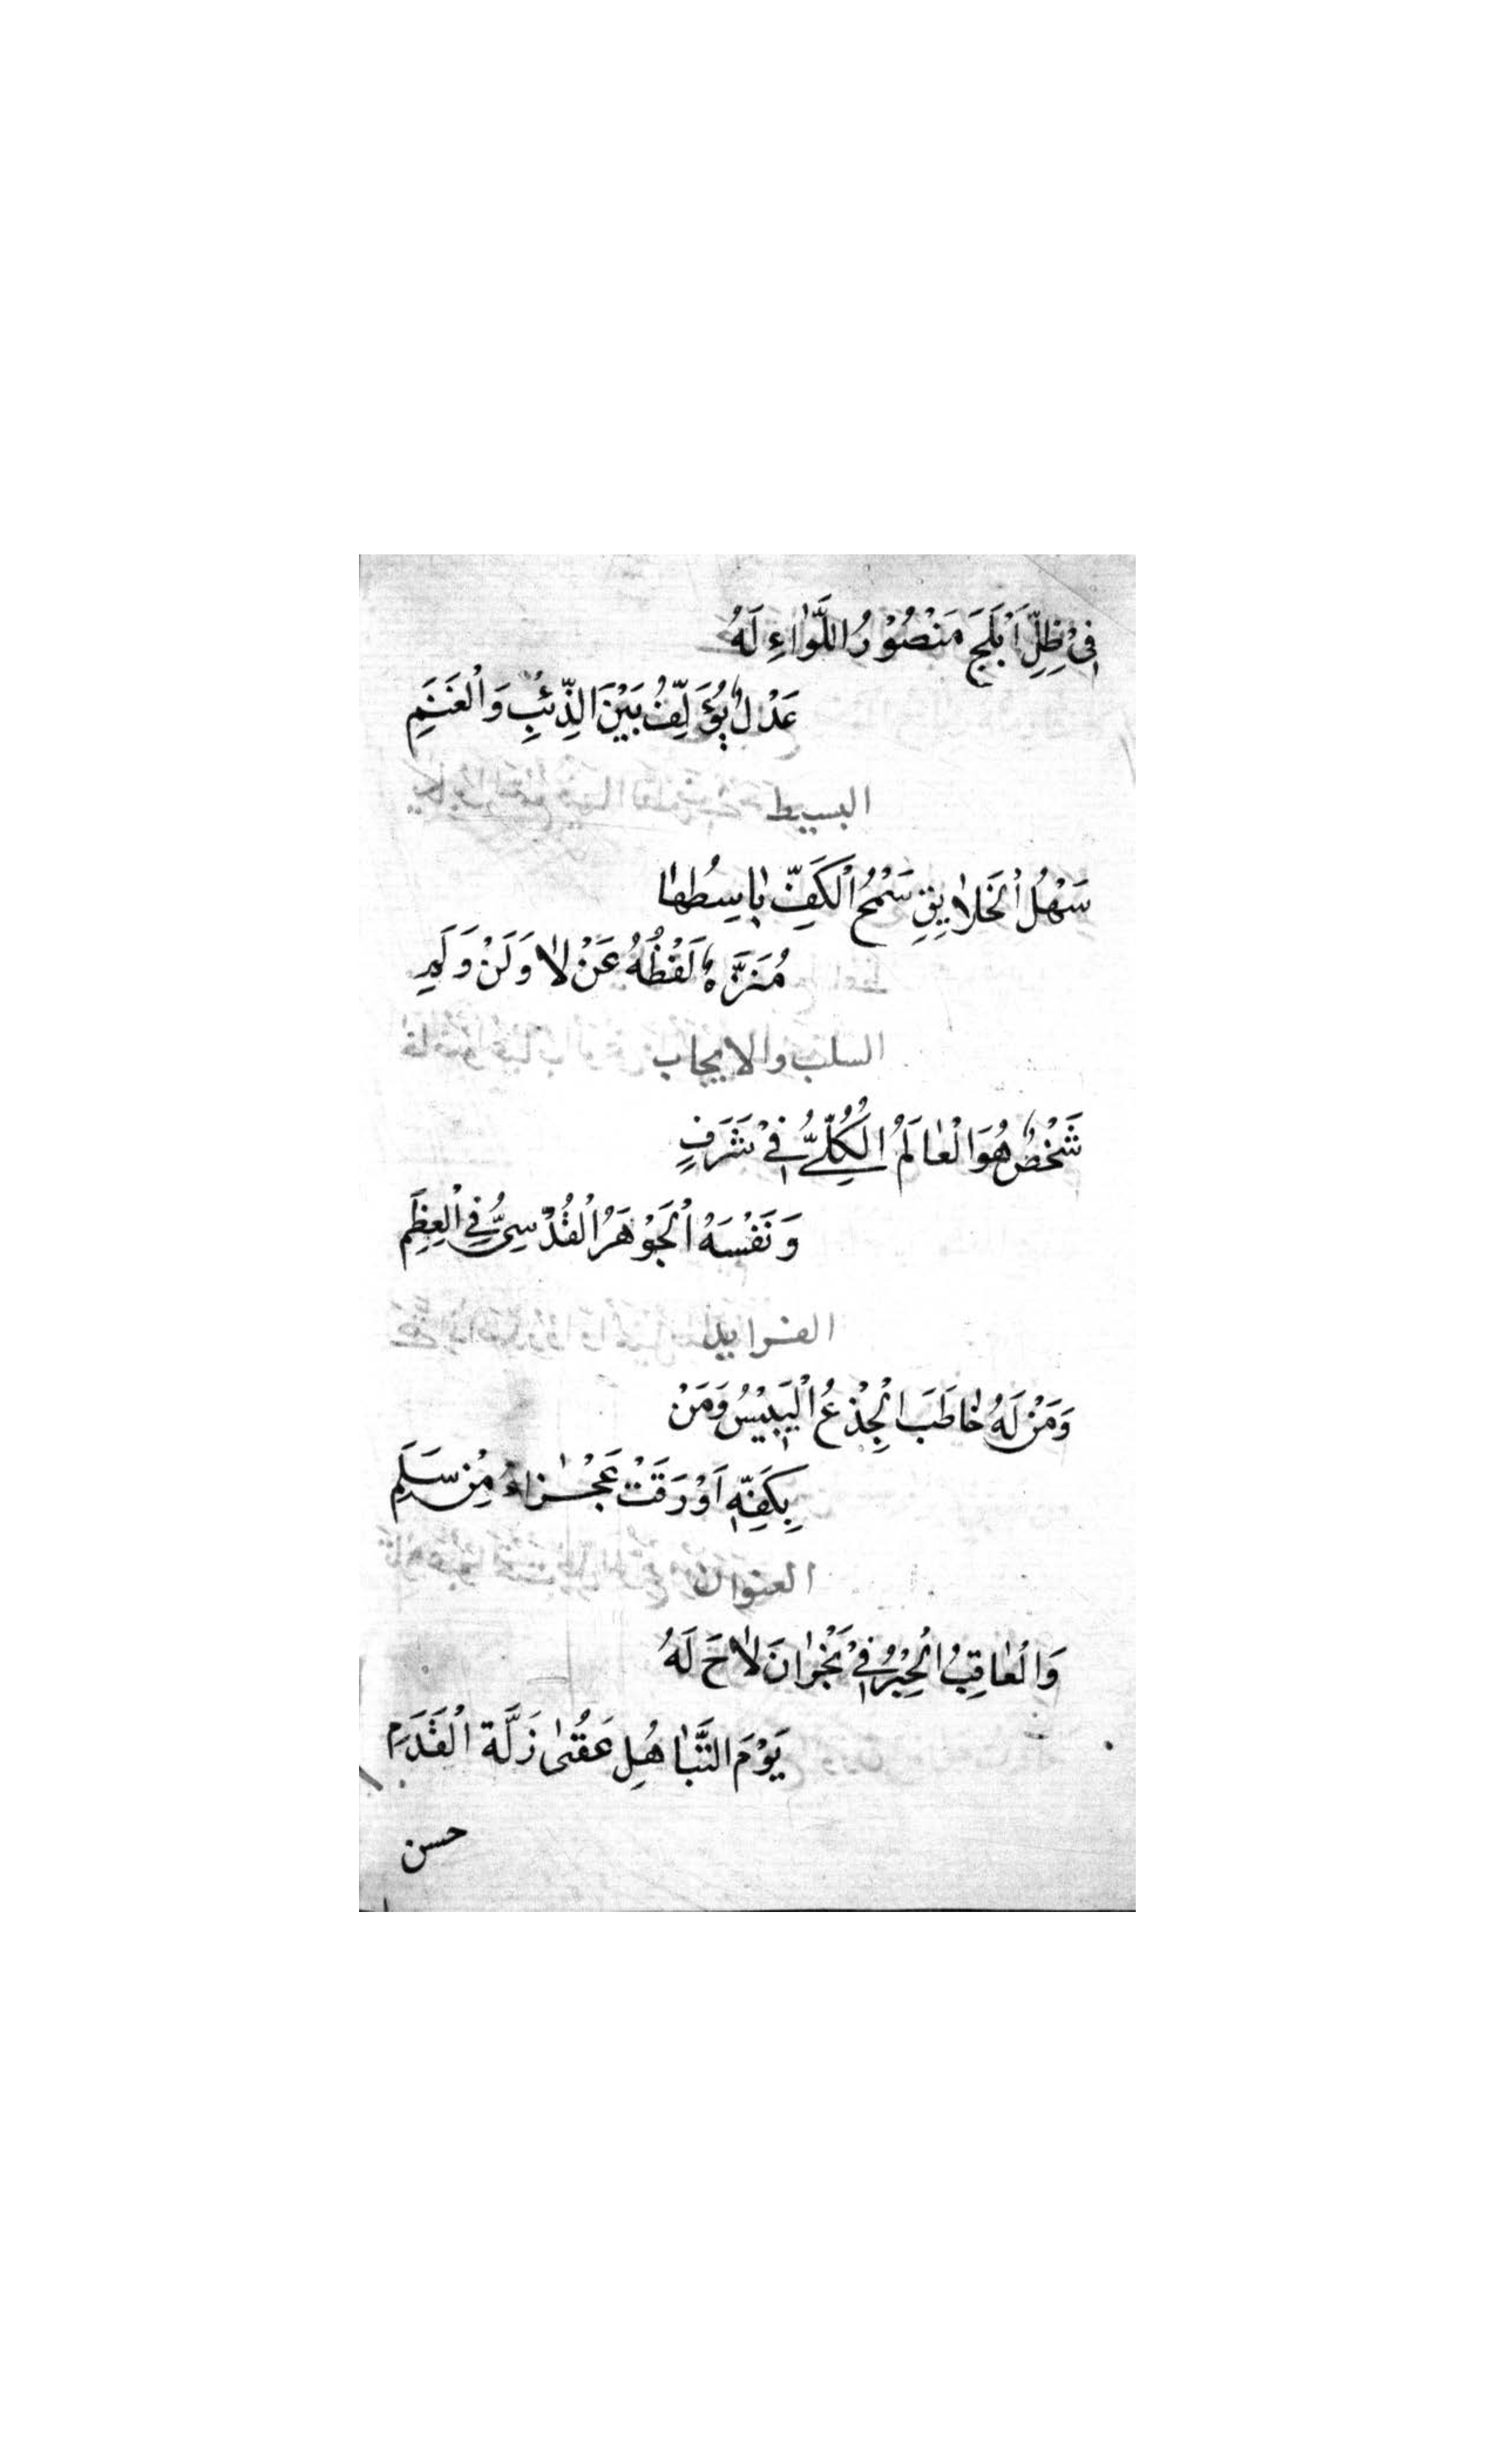 فِىْ ظِلِّ اَبْلَجَ مَنْصُوْرُ اللَّوٰاءِ لَهُ
عَدْلٌ يُؤَلِّفُ بَيْنَ الذِّئْبِ وَالْغَنَمِ
البسيط
سَهْلُ اْلخَلاٰيِقِ سَمْحُ اْلكَفِّ بٰاسِطُهٰا
مُنَزَّهٌ لَفْظُهُ عَنْ لاٰ وَلَنْ وَلَمِ
السلب والايجاب
شَخْصٌ هُوَ الْعٰالَمُ الْكُلِّىُّ فِىْ شَرَفٍ
وَنَفْسَهُ اْلجَوْهَرُ الْقُدْسِىُّ فِى الْعِظَمِ
الفرايد
وَمَنْ لَهُ خٰاطَبَ الْجِذْعُ الْيَبِيْسُ وَمَنْ
بِكَفِّهِ اَوْرَقَتْ عَجْرٰاءُ مِنْ سَلَمِ
العنوان
وَالْعٰاقِبُ الْحِبْرُ فِىْ نَجْرٰانَ لاٰحَ لَهُ
يَوْمَ التَّبٰاهُلِ عَقْبٰى زَلَّة الْقَدَمِ
حسن